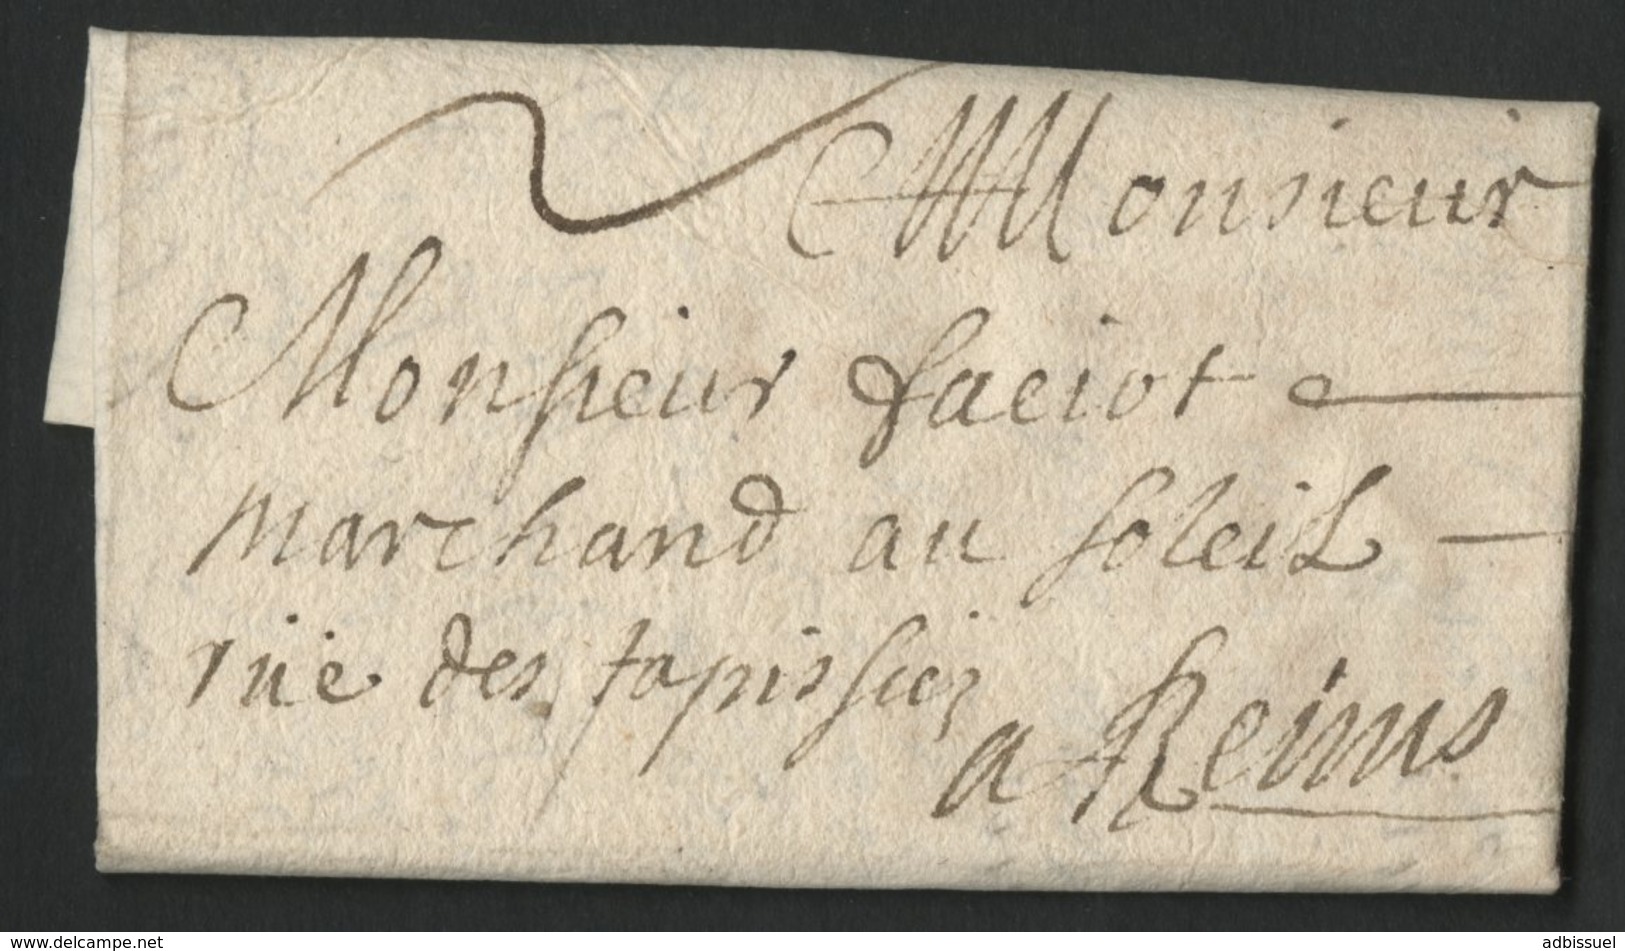 Monsieur
Monsieur faciot
marchand au soleil
rüe des tapissiez
a Reims
www.delcampe.net
adbissuel